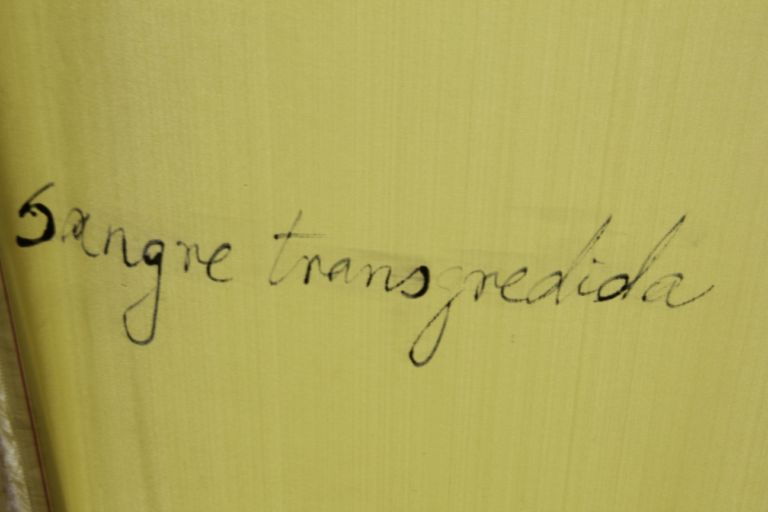 Sangre transgredida